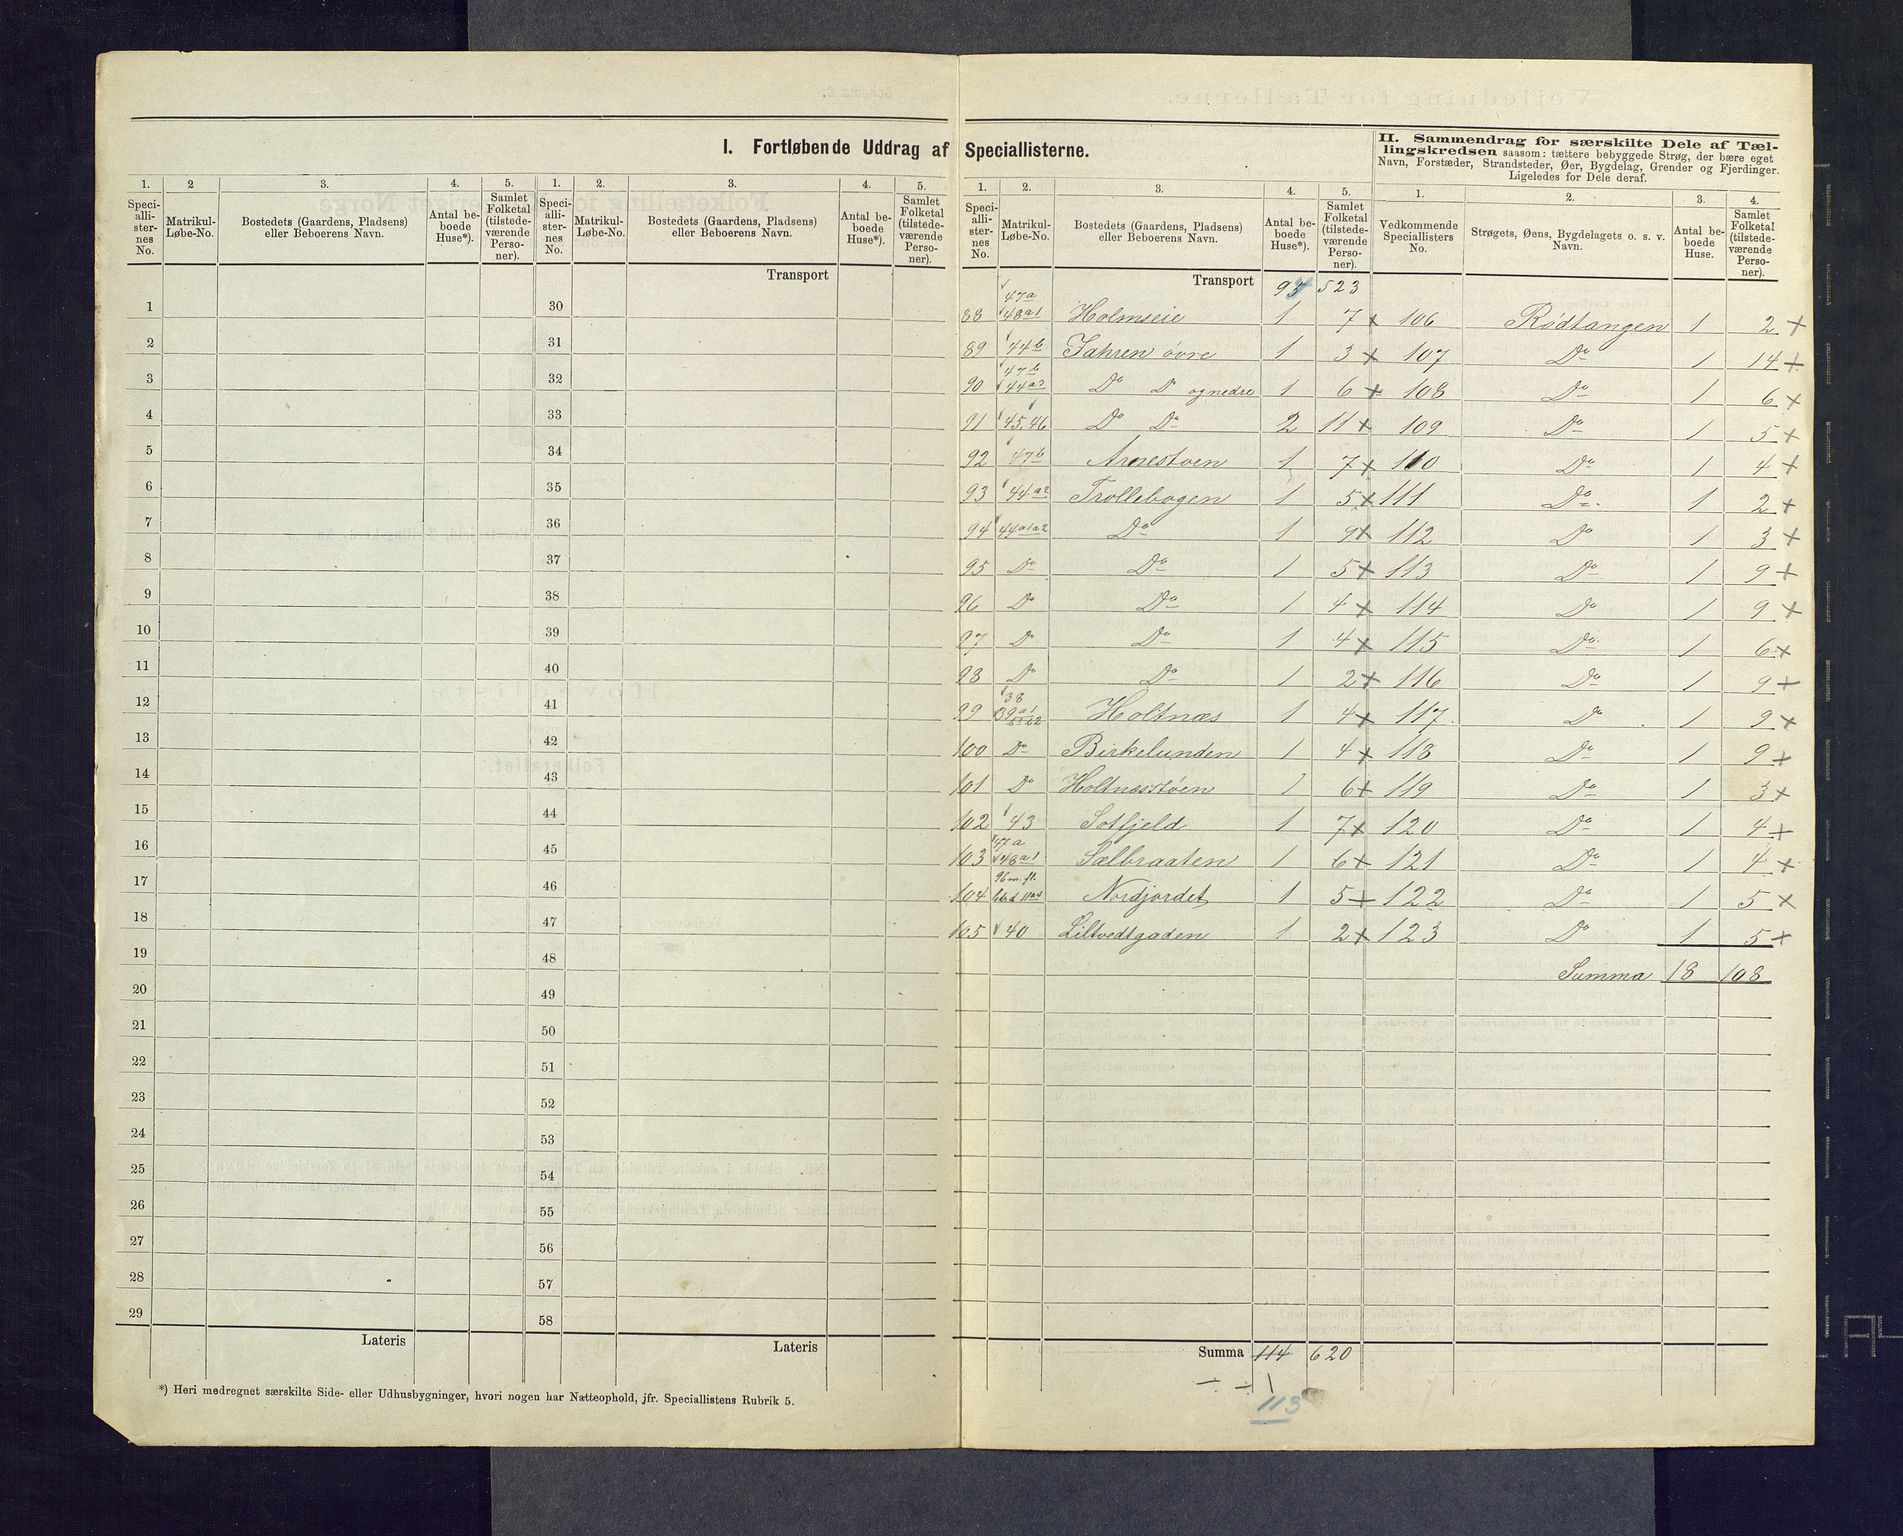 I. Fortløbende Uddrag af Speciallisterne.
II. Sammendrag for særskilte Dele af Tæl-
lingskredsen saasom: tættere bebyggede Strøg, der bære eget
Navn, Forstæder, Strandsteder, Øer, Bygdelag, Grender og Fjerdinger.
Ligeledes for Dele deraf.
1. 2 3. 4. 5. 1. 2. 3. 4. 5. 1. 2. 3. 4. 5. 1. 2. 3. 4.
Speci-
alli-
ster-
nes
No.
Matrikul-
Løbe-No.
Bostedets (Gaardens, Pladsens)
eller Beboerens Navn.
Antal be-
boede
Huse*).
Samlet
Folketal
(tilstede-
værende
Perso-
ner).
Speci-
alli-
ster-
nes
No.
Matrikul-
Løbe-No.
Bostedets (Gaardens, Pladsens)
eller Beboerens Navn.
Antal be-
boede
Huse*).
Samlet
Folketal
(tilstede-
værende
Perso-
ner).
Speci-
alli-
ster-
nes
No.
Matrikul-
Løbe-No.
Bostedets (Gaardens, Pladsens)
eller Beboerens Navn.
Antal be-
boede
Huse*).
Samlet
Folketal
(tilstede-
værende
Perso-
ner).
Vedkommende
Speciallisters
No.
Strøgets, Øens, Bygdelagets o. s. v.
Navn.
Antal be-
boede
Huse.
Samlet
Folketal
(tilstede-
værende
Perso-
ner).
Transport
1 30
2 31
3 32
4 33
5 34
6 35
7 36
8 37
9 38
10 39
11 40
12 41
13 42
14 43
15 44
16 45
17 46
18 47
19 48
20 49
21 50
22 51
23 52
24 53
25 54
26 55
27 56
28 57
29 58
Lateris Lateris
*) Heri medregnet særskilte Side- eller Udhusbygninger, hvori nogen har Natteophold, jfr. Speciallistens Rubrik 5.
Transport 523
47a
88 48a1 Holmseie 1 7 x 106 Rødtangen 1 2 x
89 44b Jahren øvre 1 3 x 107 Do 1 14 x
47b
90 44a2 Do Do ognedre 1 6 x 108 Do 1 6 x
91 45.46 Do Do 2 11 x 109 Do 1 5 x
92 47b Arnestøen 1 7 x 110 Do 1 4 x
93 44a2 Trollebogen 1 5 x 111 Do 1 2 x
94 44a1a2 Do 1 9 x 112 Do 1 3 x
95 Do Do 1 5 x 113 Do 1 9 x
96 Do Do 1 4 x 114 Do 1 9 x
97 Do Do 1 4 x 115 Do 1 6 x
98 Do Do 1 2 x 116 Do 1 9 x
38
99 39a1 Holtnæs 1 4 x 117 Do 1 9 x
100 Do Birkelunden 1 4 x 118 Do 1 9 x
101 Do Holtnæsstøen 1 6 x 119 Do 1 3 x
102 43 Solfjeld 1 7 x 120 Do 1 4 x
47a
103 48a1 Sælbraaten 1 6 x 121 Do 1 4 x
96 m. fl.
104 Nordjordet 1 5 x 122 Do 1 5 x
105 40 Liltvedtgaden 1 2 x 123 Do 1 5 x
Summa 18 108
Summa 114 620
÷ ÷ 1
113